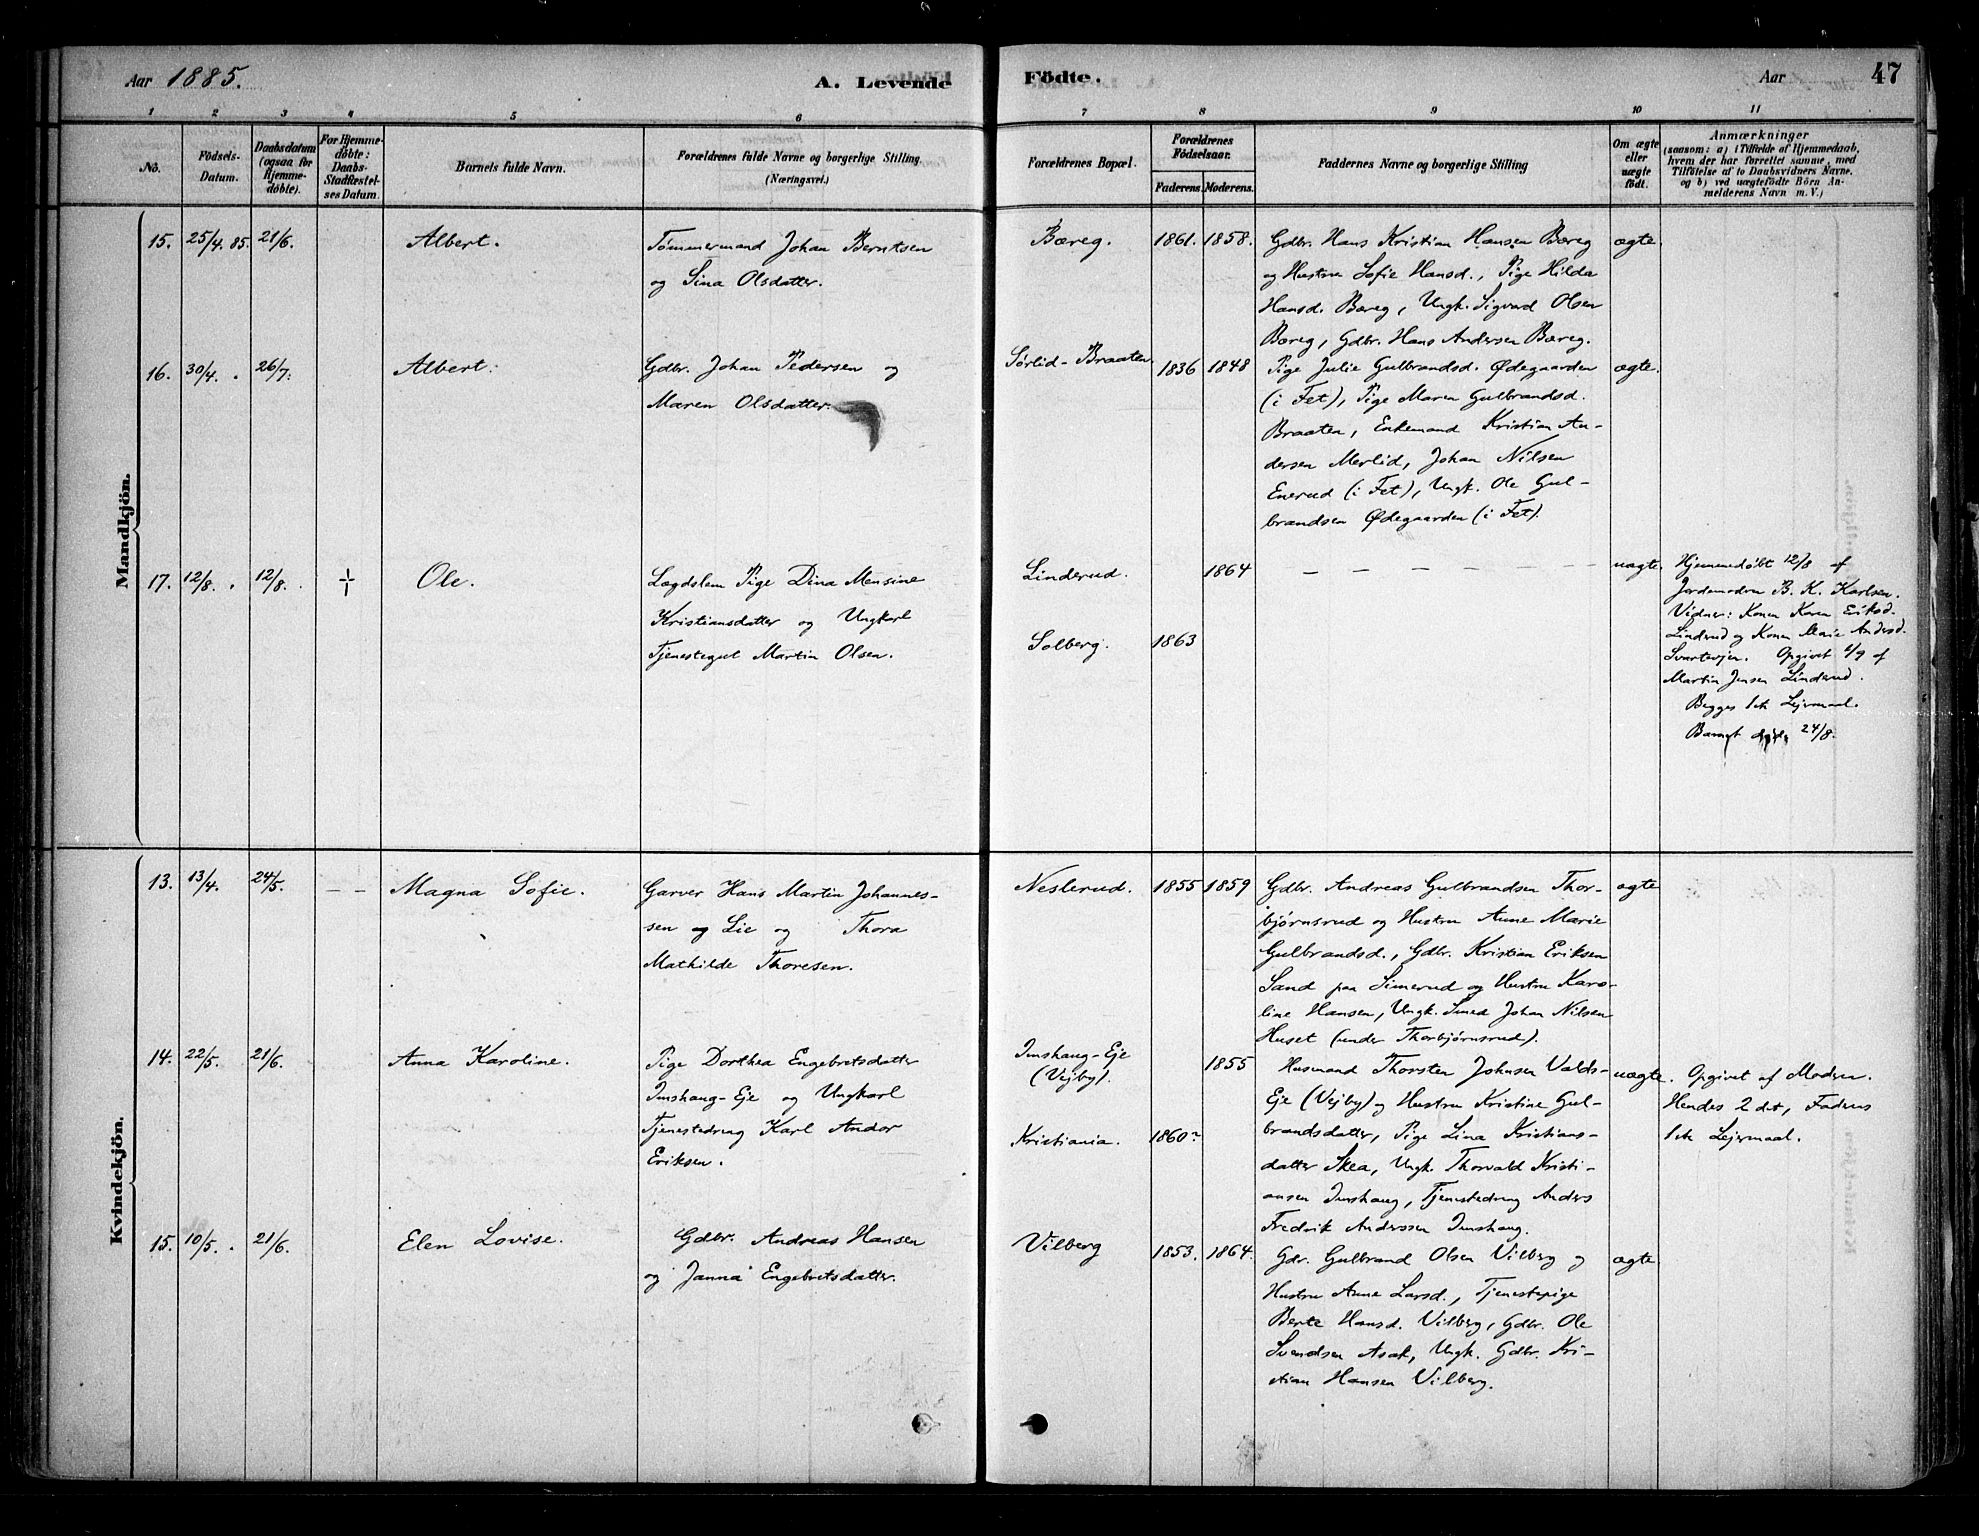 Aar 1885.
A. Levende
Födte.
Aar
47
1 2 3 4 5 6 7 8 9 10 11
No.
Födsels-
Datum.
Daabsdatum
(ogsaa for
Hjemme-
döbte).
For Hjemme-
döbte:
Daabs-
Stadfæstel-
ses Datum.
Barnets fulde Navn.
Forældrenes fulde Navne og borgerlige Stilling
(Næringsvei.)
Forældrenes Bopæl.
Forældrenes
Födselsaar.
Faderens. Moderens.
Faddernes Navne og borgerlige Stilling
Om ægte
eller
uægte
födt.
Anmærkninger
(saasom: a) i Tilfælde af Hjemmedaab,
hvem der har forrettet samme, med
Tilföielse af to Daabsvidners Navne,
og b) ved uægtefödte Börn An-
melderens Navn m. V.)
Mandkjön.
15. 25/4. 85. 21/6. Albert.
Tømmermand Johan Berntsen
og Sina Olsdatter.
Bæreg. 1861. 1858.
Gdbr. Hans Kristian Hansen Bæreg
og Hustru Sofie Hansd., Pige Hilda
Hansd. Bæreg, Ungk. Sigvard Olsen
Bæreg, Gdbr. Hans Andersen Bæreg.
ægte.
16. 30/4. 26/7. Albert.
Gdbr. Johan Pedersen og
Maren Olsdatter.
Sørlid-Braaten. 1836 1848
Pige Julie Gulbrandsd. Ødegaarden
(i Fet), Pige Maren Gulbrandsd.
Braaten, Enkemand Kristian An-
dersen Merlid, Johan Nilsen
Enerud (i Fet), Ungk. Ole Gul-
brandsen Ødegaarden (i Fet).
ægte.
17. 12/8. 12/8. † Ole.
Lægdslem Pige Dina Mensine
Kristiansdatter og Ungkarl
Tjenestegut Martin Olsen.
Linderud. 1864
Solberg. 1863
— — — — — —
uægte.
Hjemmedøbt 12/8 af
Jordemoderen B. K. Karlsen.
Vidner: Konen Karen Eriksd.
Linderud og Konen Marie Andersd.
Opgivet 2/9 af
Martin Jensen Linderud.
Begges 1ste Lejermaal.
Barnet døde 24/8.
Kvindekjön.
13. 13/4. 24/5. — — Magna Sofie.
Garver Hans Martin Johannes-
sen og Lie og Thora
Mathilde Thoresen.
Neslerud. 1855 1859
Gdbr. Andreas Gulbrandsen Thor-
bjørnsrud og Hustru Anne Marie
Gulbrandsd., Gdbr. Kristian Eriksen
Sand paa Simerud og Hustru Karo-
line Hansen, Ungk. Smed Johan Nilsen
Huset (under Thorbjørnsrud).
ægte
14. 22/5. 21/6. Anna Karoline.
Pige Dorthea Engebretsdatter
Imshaug-Eje og Ungkarl
Tjenestedreng Karl Andor
Eriksen.
Imshaug-Eje
(Vejby).
1855
Kristiania. 1860?
Husmand Thorsten Johnsen Valds-
Eje (Vejby) og Hustru Kristine Gul-
brandsdatter, Pige Lina Kristians-
datter Skea, Ungk. Thorvald Kristi-
ansen Imshaug, Tjenestedreng Anders
Fredrik Anderssen Imshaug.
uægte.
Opgivet af Moderen.
Hendes 2det, Faderens
1ste Lejermaal.
15. 10/5. 21/6. Elen Lovise.
Gdbr. Andreas Hansen
og Janna Engebretsdatter.
Vilberg 1853. 1864.
Gdr. Gulbrand Olsen Vilberg og
Hustru Anne Larsd., Tjenestepige
Berte Hansd. Vilberg, Gdbr. Ole
Svendsen Asak, Ungk. Gdbr. Kri-
stian Hansen Vilberg.
ægte.